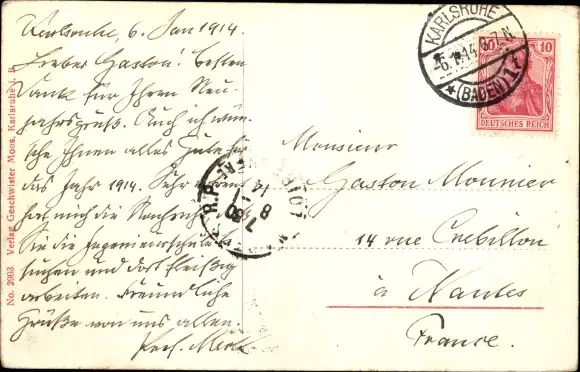 Karlsruhe, 6. Jan 1914.
Lieber Gaston! Besten
Dank für Ihren Neu-
jahrsgruß. Auch ich wün-
sche Ihnen alles Gute für
das Jahr 1914. Sehr
hat mich die Nachricht
Sie die Ingenieurschule
suchen und dort fleißig
arbeiten. Freundliche
Grüße von uns allen.
Prof.
Monsieur
Gaston Mounier
14 rue Crébillon
à Nantes
France.
KARLSRUHE
(BADEN)
10
DEUTSCHES REICH
R.P.
No. 2903 Verlag Geschwister Moos, Karlsruhe i. B.